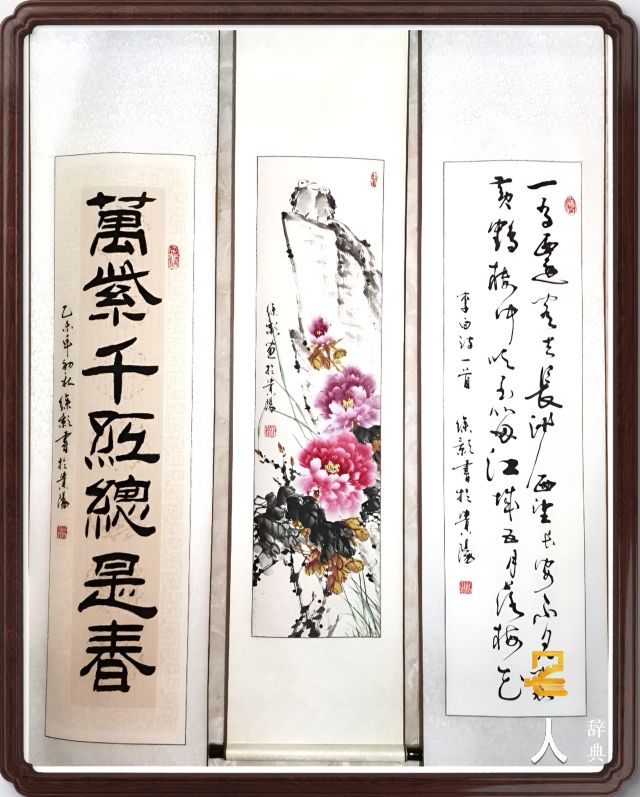 一為遷客去長沙西望長安不見家
黃鶴樓中吹玉笛江城五月落梅花
李白詩一首 徐書於貴陽
徐畫於貴陽
萬紫千紅總是春
乙未年初秋徐書於貴陽
人
辞典